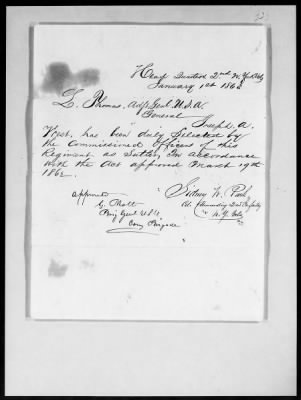 Head Quarters 2nd N.Y. Vols
January 1st 1863
L. Thomas, Adjt Genl U.S.A.
General
Joseph A.
has been duly selected by
the Commissioned Officers of this
Regiment as Sutler, in accordance
with the Act approved March 19th
1862.
Sidney W. Park
Col. Commanding 2nd Infantry
N.Y. Vols
approved
G. Mott
Brig Genl U.S.V.
Comg Brigade